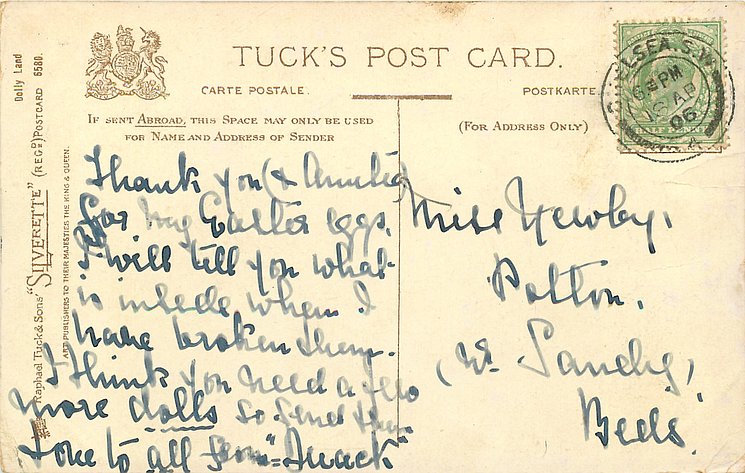 TUCK'S POST CARD.
CARTE POSTALE.
POSTKARTE
IF SENT ABROAD, THIS SPACE MAY ONLY BE USED
FOR NAME AND ADDRESS OF SENDER
(FOR ADDRESS ONLY)
Dolly Land
Raphael Tuck & Sons' "SILVERETTE" (REGD) POSTCARD 6580.
ART PUBLISHERS TO THEIR MAJESTIES THE KING & QUEEN.
LSEA. S.W.
PM
AP
06
Thank you (&
for my Easter eggs.
I will tell you what
is inside when I
have broken them.
I think you need a few
more dolls so send
to all from "Quack"
Miss Newby,
Potton,
(Nr Sandy)
Beds.